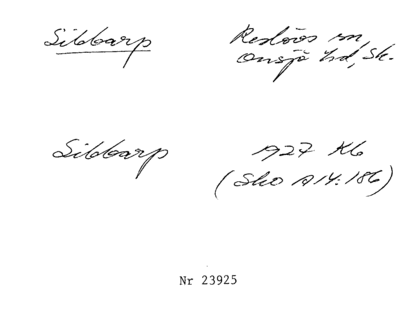 Sibbarp
Reslövs sn,
Onsjö hd, Sk.
Sibbarp
1927 Kb
(SkO A14:186)
Nr 23925